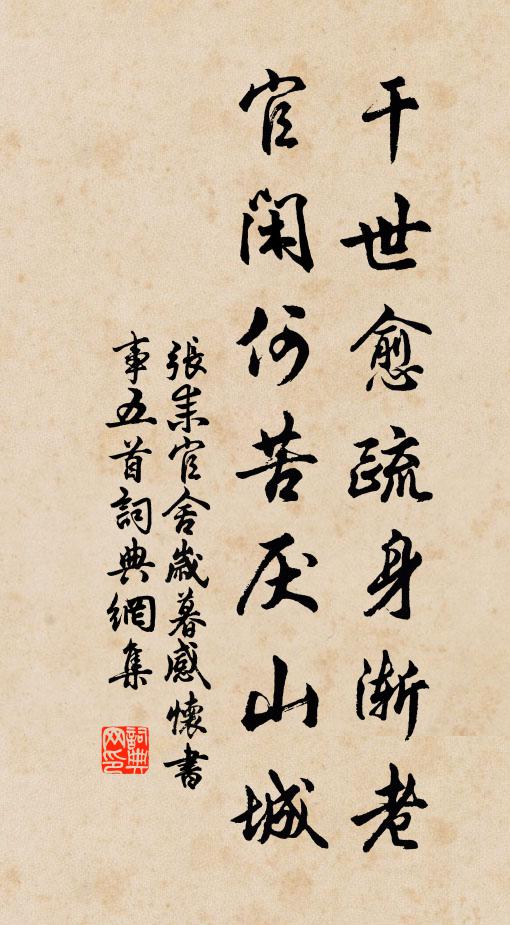 干世愈疏身渐老
官闲何苦厌山城
張耒官舍歲暮感懷書
事五首詞典網集
詞典网印